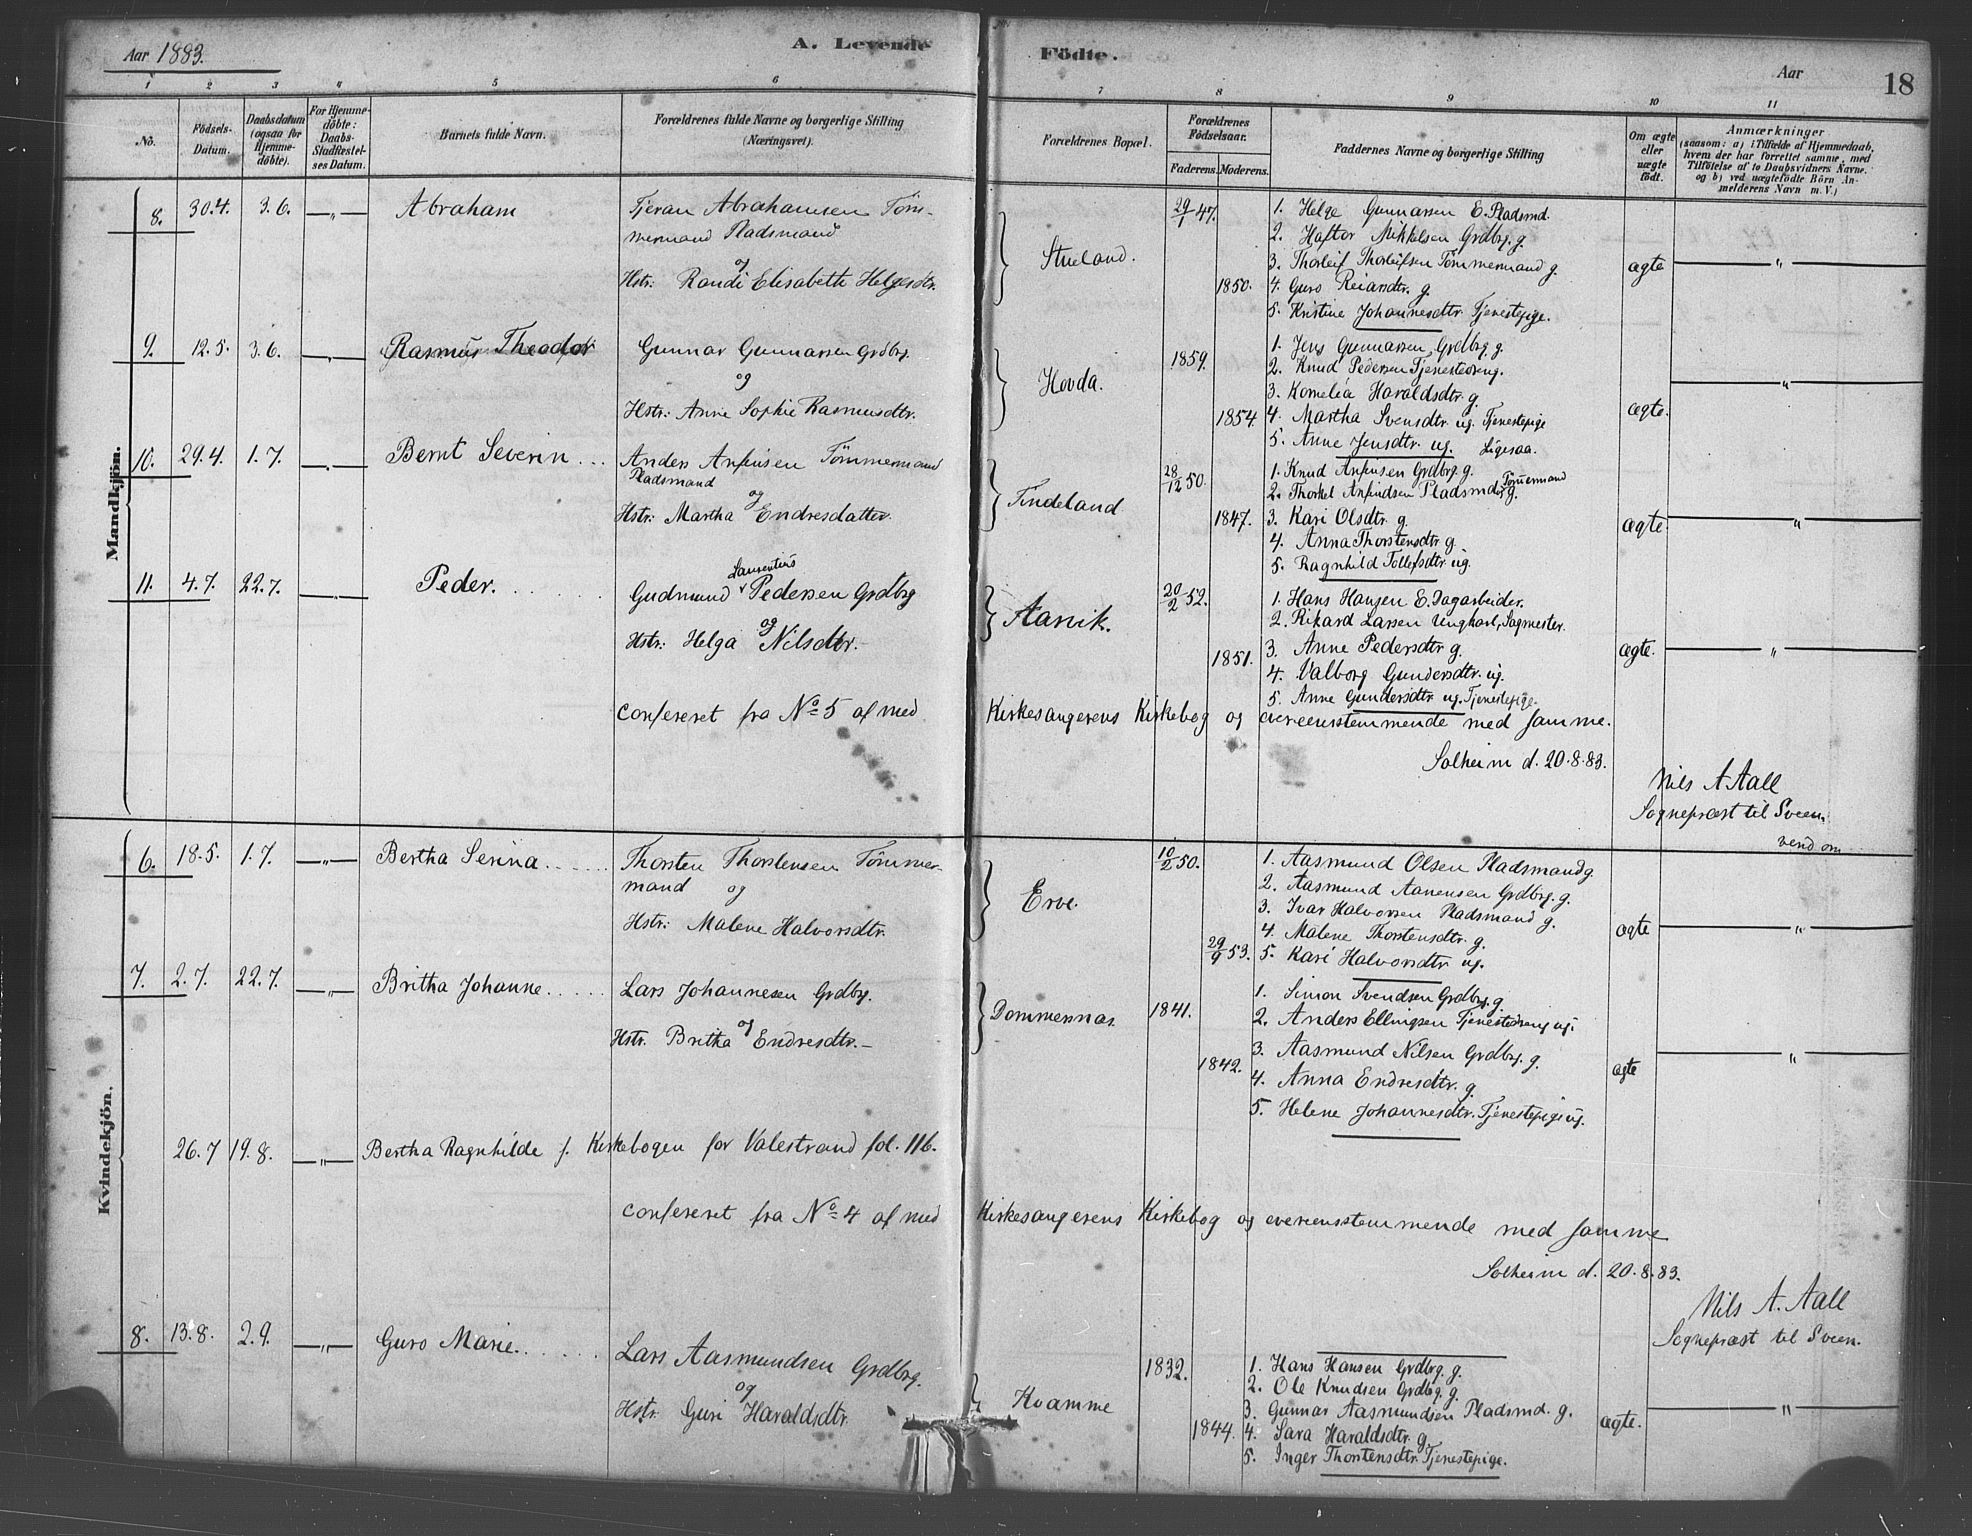 Aar 1883.
A. Levende
Födte.
Aar
18
1 2 3 4 5 6 7 8 9 10 11
No.
Födsels-
Datum.
Daabsdatum
(ogsaa for
Hjemme-
döbte).
For Hjemme-
döbte:
Daabs
Stadfæstel-
ses Datum.
Barnets fulde Navn.
Forældrenes fulde Navne og borgerlige Stilling
(Næringsvei).
Forældrenes Bopæl.
Forældrenes
Födselsaar.
Faderens. Moderens.
Faddernes Navne og borgerlige Stilling
Om ægte
eller
uægte
födt.
Anmærkninger
(saasom: a) i Tilfælde af Hjemmedaab,
hvem der har forrettet samme, med
Tilföielse af to Daabsvidners Navne.
og b) ved uægtefödte Börn An-
melderens Navn m. V.)
Mandkjön.
8. 30.4. 3.6. —"— Abraham
Tjeran Abrahamsen Töm-
mermand Pladsmand
og
Hstr: Randi Elisabeth Helgesdtr.
Stueland.
29/1 47.
1850.
1. Helge Gunnarsen E. Pladsmd.
2. Haftor Mikkelsen Grdbrg. g.
3. Thorleif Thorleifsen Tömmermand g.
4. Guro Reiarsdtr. g.
5. Kristine Johannesdtr. Tjenestepige.
ægte
—"—
9. 12.5. 3.6. —"— Rasmus Theodor
Gunnar Gunnarsen Grdbrg.
og
Hstr: Anne Sophie Rasmusdtr.
Hovda.
1859.
1854.
1. Jens Gunnarsen Grdbrg g.
2. Knud Pedersen Tjenestedreng.
3. Kornelia Haraldsdtr. g.
4. Martha Svensdtr. ug. Tjenestepige
5. Anne Jensdtr. ug. Ligesaa.
ægte.
—"—
10. 29.4. 1.7. —"— Bernt Severin ...
Anders Anfinsen Tömmermand
Pladsmand
og
Hstr: Martha Endresdatter.
Tindeland
28/12 50.
1847.
1. Knud Anfinsen Grdbrg. g.
2. Thorkel Anfindsen Pladsmd og Tömermand g.
3. Kari Olsdtr. g.
4. Anna Thorstensdtr. g.
5. Ragnhild Tollefsdtr. ug.
ægte.
—"—
11. 4.7. 22.7. —"— Peder. ......
Laurentius
Gudmund Pedersen Grdbrg
og
Hstr: Helga Nilsdtr. –
Aarvik.
20/2 52.
1851.
1. Hans Hansen E. Dagarbeider.
2. Rikard Larsen Ungkarl, Sagmester.
3. Anne Pedersdtr. g.
4. Valborg Gundersdtr. ug.
5. Anne Gundersdtr. ug. Tjenestepige.
ægte.
—"—
Confereret fra No 5 af med Kirkesangerens Kirkebog og overensstemmende med samme.
Solheim d. 20.8.83.
Nils A Aall
Sognepræst til Sveen.
vend om
Kvindekjön.
6. 18.5. 1.7. —"— Bertha Serina......
Thorsten Thorstensen Tömmer-
mand og
Hstr: Malene Halvorsdtr.
Erve.
10/2 50.
29/9 53.
1. Aasmund Olsen Pladsmand g.
2. Aasmund Aanensen Grdbrg. g.
3. Ivar Halvorsen Pladsmand g.
4. Malene Thorstensdtr. g.
5. Kari Halvorsdtr. ug.
ægte
—"—
7. 2.7. 22.7. —"— Britha Johanne......
Lars Johannesen Grdbrg.
og
Hstr. Britha Endresdtr. –
Dommersnæs.
1841.
1842.
1. Simon Svendsen Grdbrg. g.
2. Anders Ellingsen Tjenestedreng ug.
3. Aasmund Nilsen Grdbrg. g.
4. Anna Endresdtr. g.
5. Helene Johannesdtr. Tjenestepige ug.
ægte
—"—
26.7 19.8. —"— Bertha Ragnhilde f. Kirkebogen for Valestrand fol. 116.
Confereret fra No 4 af med Kirkesangerens Kirkebog og overensstemmende med samme
Solheim d. 20.8.83.
Nils A. Aall
Sognepræst til Sveen.
8. 13.8. 2.9. —"— Guro Marie......
Lars Aasmundsen Grdbrg.
og
Hstr. Guri Haraldsdtr.
Kvamme
1832.
1844.
1. Hans Hansen Grdbrg. g.
2. Ole Knudsen Grdbrg. g
3. Gunnar Aasmundsen Pladsmd. g.
4. Sara Haraldsdtr. g.
5. Inger Thorstensdtr. Tjenestepige.
ægte.
—"—